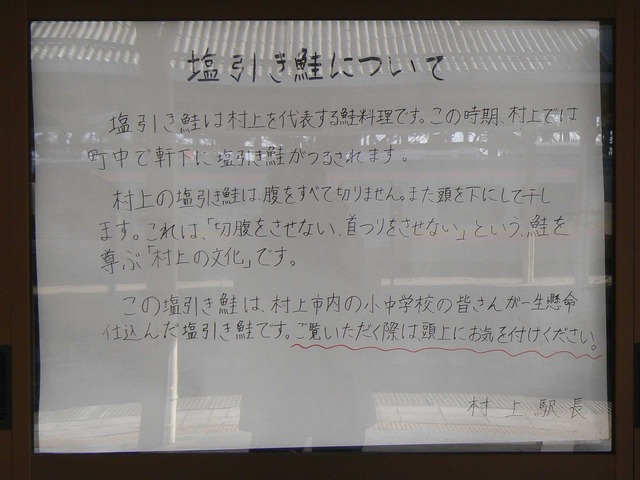 塩引き鮭について
塩引き鮭は村上を代表する鮭料理です。この時期、村上では
町中で軒下に塩引き鮭がつるされます。
村上の塩引き鮭は、腹をすべて切りません。また頭を下にして干し
ます。これは、「切腹をさせない、首つりをさせない」という、鮭を
尊ぶ「村上の文化」です。
この塩引き鮭は、村上市内の小中学校の皆さんが一生懸命
仕込んだ塩引き鮭です。ご覧いただく際は、頭上にお気を付けください。
村上駅長